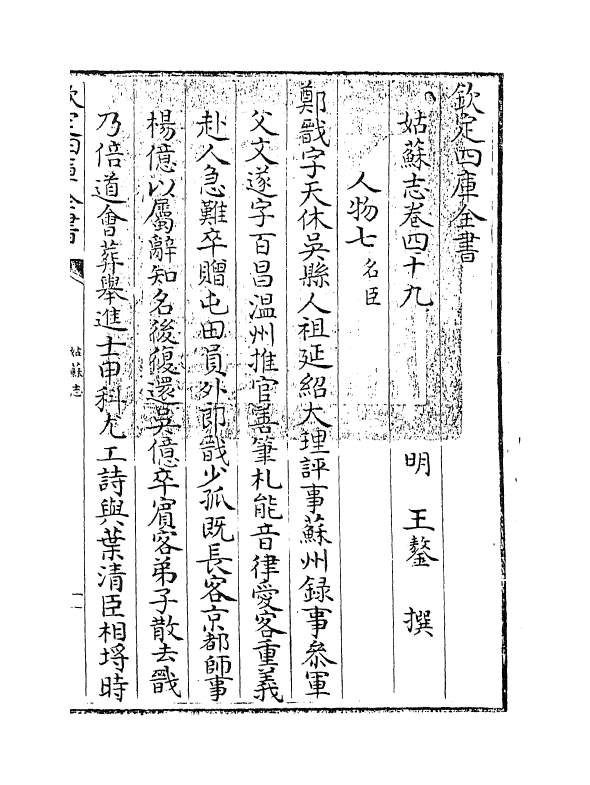 欽定四庫全書
姑蘇志卷四十九
明 王鏊 撰
人物七 名臣
鄭戩字天休吳縣人祖延紹大理評事蘇州録事叅軍
父文遂字百昌温州推官善筆札能音律愛客重義
赴人急難卒贈屯田員外郎戩少孤既長客京都師事
楊億以屬辭知名後復還吳億卒賓客弟子散去戩
乃倍道會葬舉進士甲科尤工詩與葉清臣相埒時
欽定四庫全書
姑蘇志